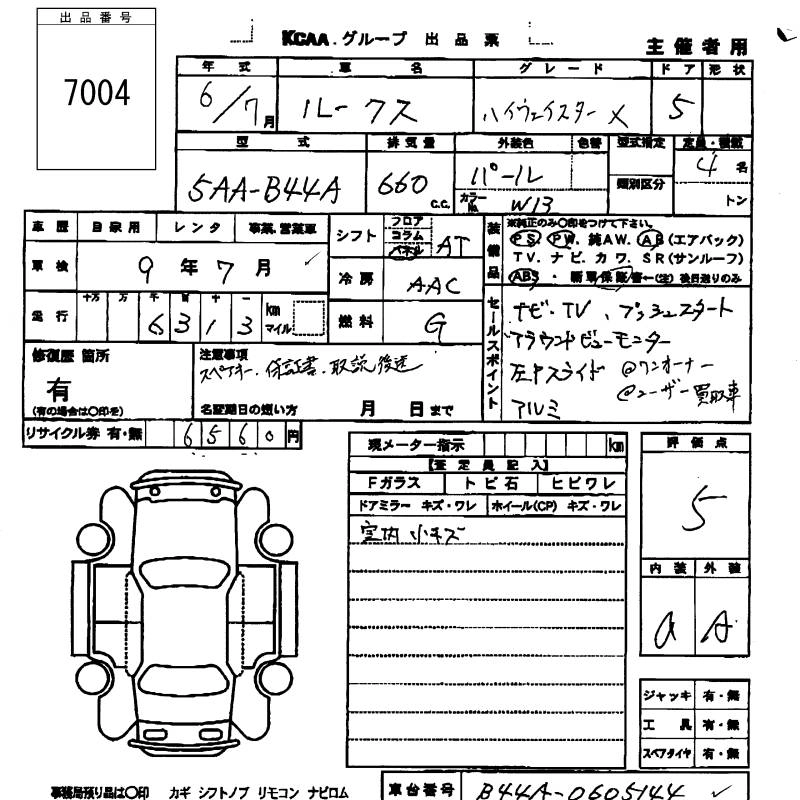 出品番号
7004
KCAA.グループ 出品票
主催者用
年式 車名 グレード ドア 形状
6/7月 ルークス ハイウェイスター X 5
型式 排気量 外装色 色替 型式指定 定員・積載
5AA-B44A 660 C.C. パール 4名
カラーNo. W13 類別区分 トン
車歴 自家用 レンタ 事業.営業車
シフト フロア コラム パネル AT
車検 9年7月
冷房 AAC
走行 十万 万 千 百 十 一 km マイル
6 3 1 3
燃料 G
装備品
※純正のみ○印をつけて下さい。
PS. PW. 純AW. AB (エアバック)
TV. ナビ. カワ. SR (サンルーフ)
ABS・新車保証書←(定)後日送りのみ
セールスポイント
ナビ・TV、プッシュスタート
アラウンドビューモニター
左Pスライド @ワンオーナー
アルミ @ユーザー買取車
修復歴 箇所
有
(有の場合は○印を)
注意事項
スペアキー.保証書.取説後送
名変期日の短い方 月 日まで
リサイクル券 有・無 6560円
現メーター指示 km
【査定員記入】
Fガラス トビ石 ヒビワレ
ドアミラー キズ・ワレ ホイール(CP) キズ・ワレ
室内小キズ
評価点
5
内装 外装
a A
ジャッキ 有・無
工具 有・無
スペアタイヤ 有・無
事務局預り品は○印 カギ シフトノブ リモコン ナビロム
車台番号 B44A-0605144